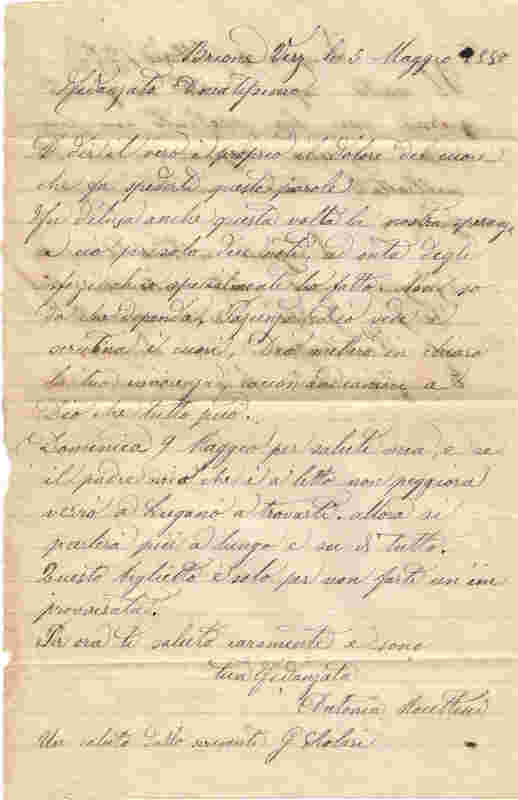 Brione Verz. li 5 Maggio
Fidanzato Amatissimo
A dir il vero è proprio il dolore del cuore
che fa spedirti queste parole
Fu delusa anche questa volta la nostra speranza
a no per solo dieci voti, ad onta degli
sforzi che specialmente ho fatto. Non so
da che dependa, Pazienza Iddio vede e
scrutina i cuori, Dio metterà in chiaro
la tua innocenza, raccomandiamoci a
Dio che tutto può.
Domenica 9 Maggio per saluti mia, e se
il padre mio che è a letto non peggiora
verrò a Lugano a trovarti. allora si
parlerà più a lungo e su di tutto.
Questo biglietto è solo per non farti un im
provvisata.
Per ora ti saluto caramente e sono
tua Fidanzata
Antonia
Un saluto dallo scrivente G